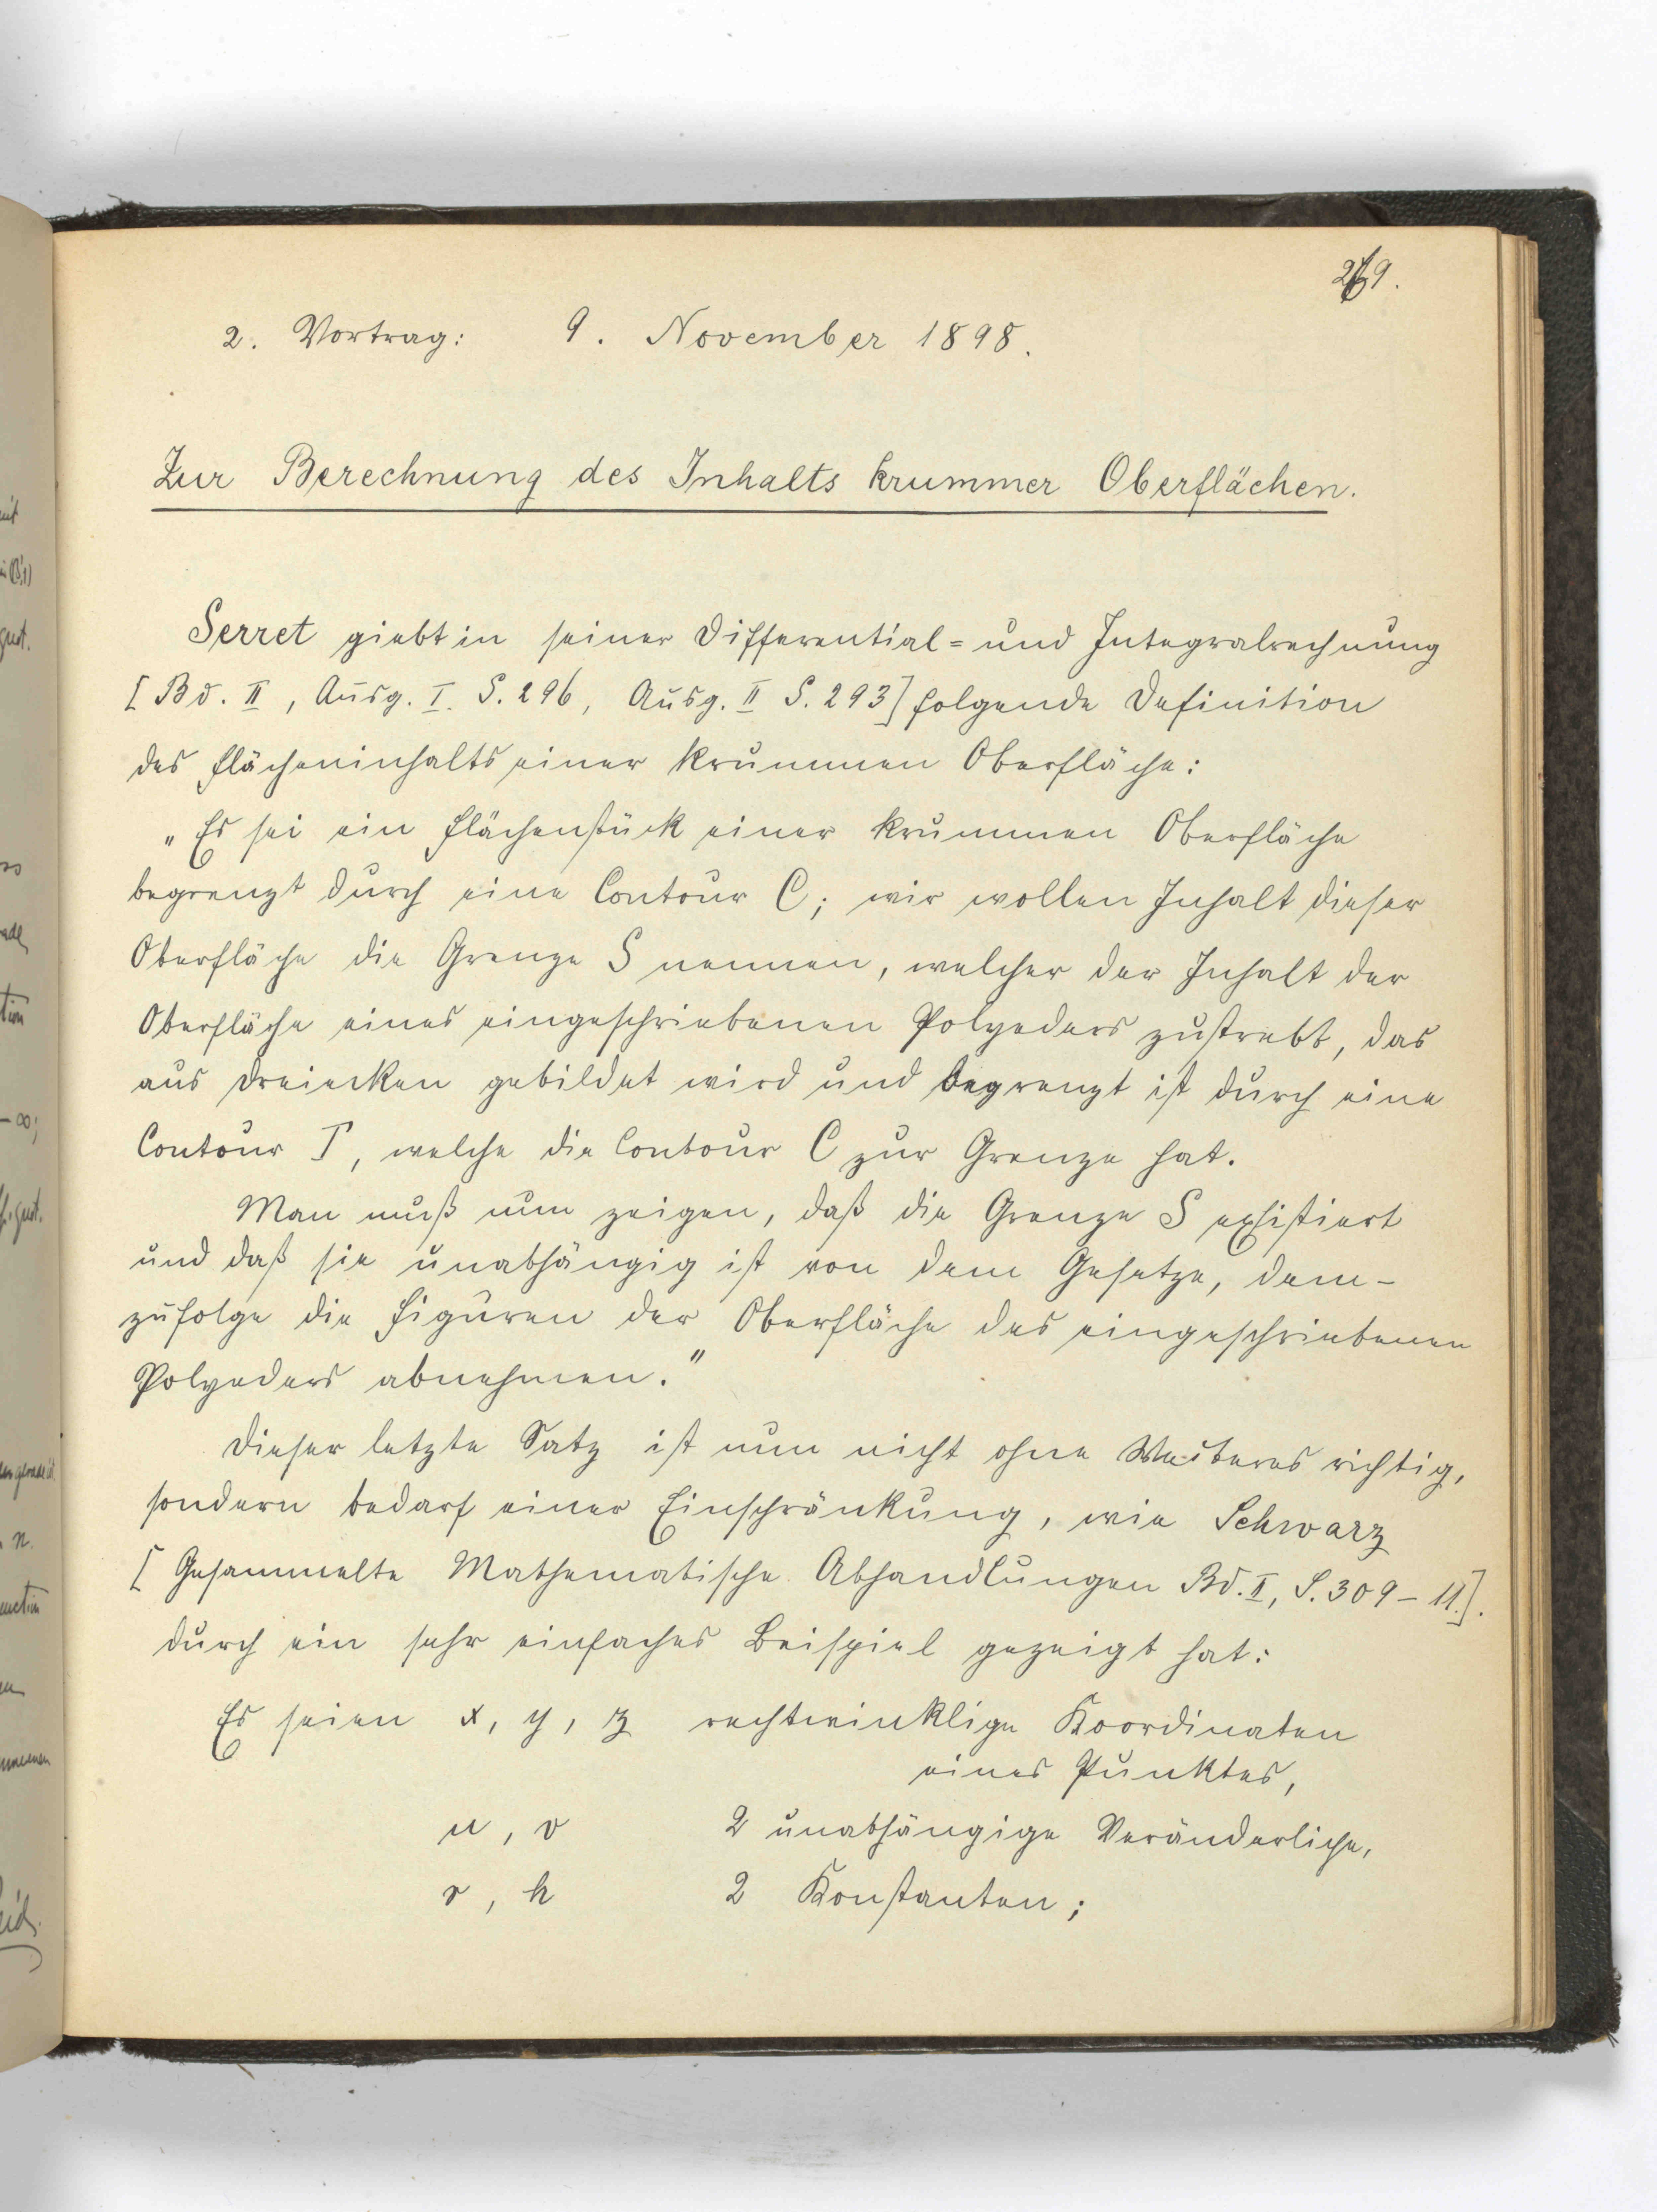 269.
2. Vortrag: 9. November 1898.
Zur Berechnung des Inhalts krummer Oberflächen.
Serret giebt in seiner Differential= und Integralrechnung
[Bd. II, Ausg. I. S. 296, Ausg. II S. 293] folgende Definition
des Flächeninhalts einer krummen Oberfläche:
„Es sei ein Flächenstück einer krummen Oberfläche
begrenzt durch eine Contour C; wir wollen Inhalt dieser
Oberfläche die Grenze S nennen, welcher der Inhalt der
Oberfläche eines eingeschriebenen Polyeders zustrebt, das
aus Dreiecken gebildet wird und begrenzt ist durch eine
Contour Γ, welche die Contour C zur Grenze hat.
Man muß nun zeigen, daß die Grenze S exsistiert
und daß sie unabhängig ist von dem Gesetze, dem-
zufolge die Figuren der Oberfläche des eingeschriebenen
Polyeders abnehmen."
Dieser letzte Satz ist nun nicht ohne Weiteres richtig,
sondern bedarf einer Einschränkung, wie Schwarz
[Gesammelte Mathematische Abhandlungen Bd. II, S. 309 – 11.].
durch ein sehr einfaches Beispiel gezeigt hat:
Es seien x, y, z rechtwinklige Koordinaten
eines Punktes,
u, v 2 unabhängige Veränderliche,
r, h 2 Konstanten;